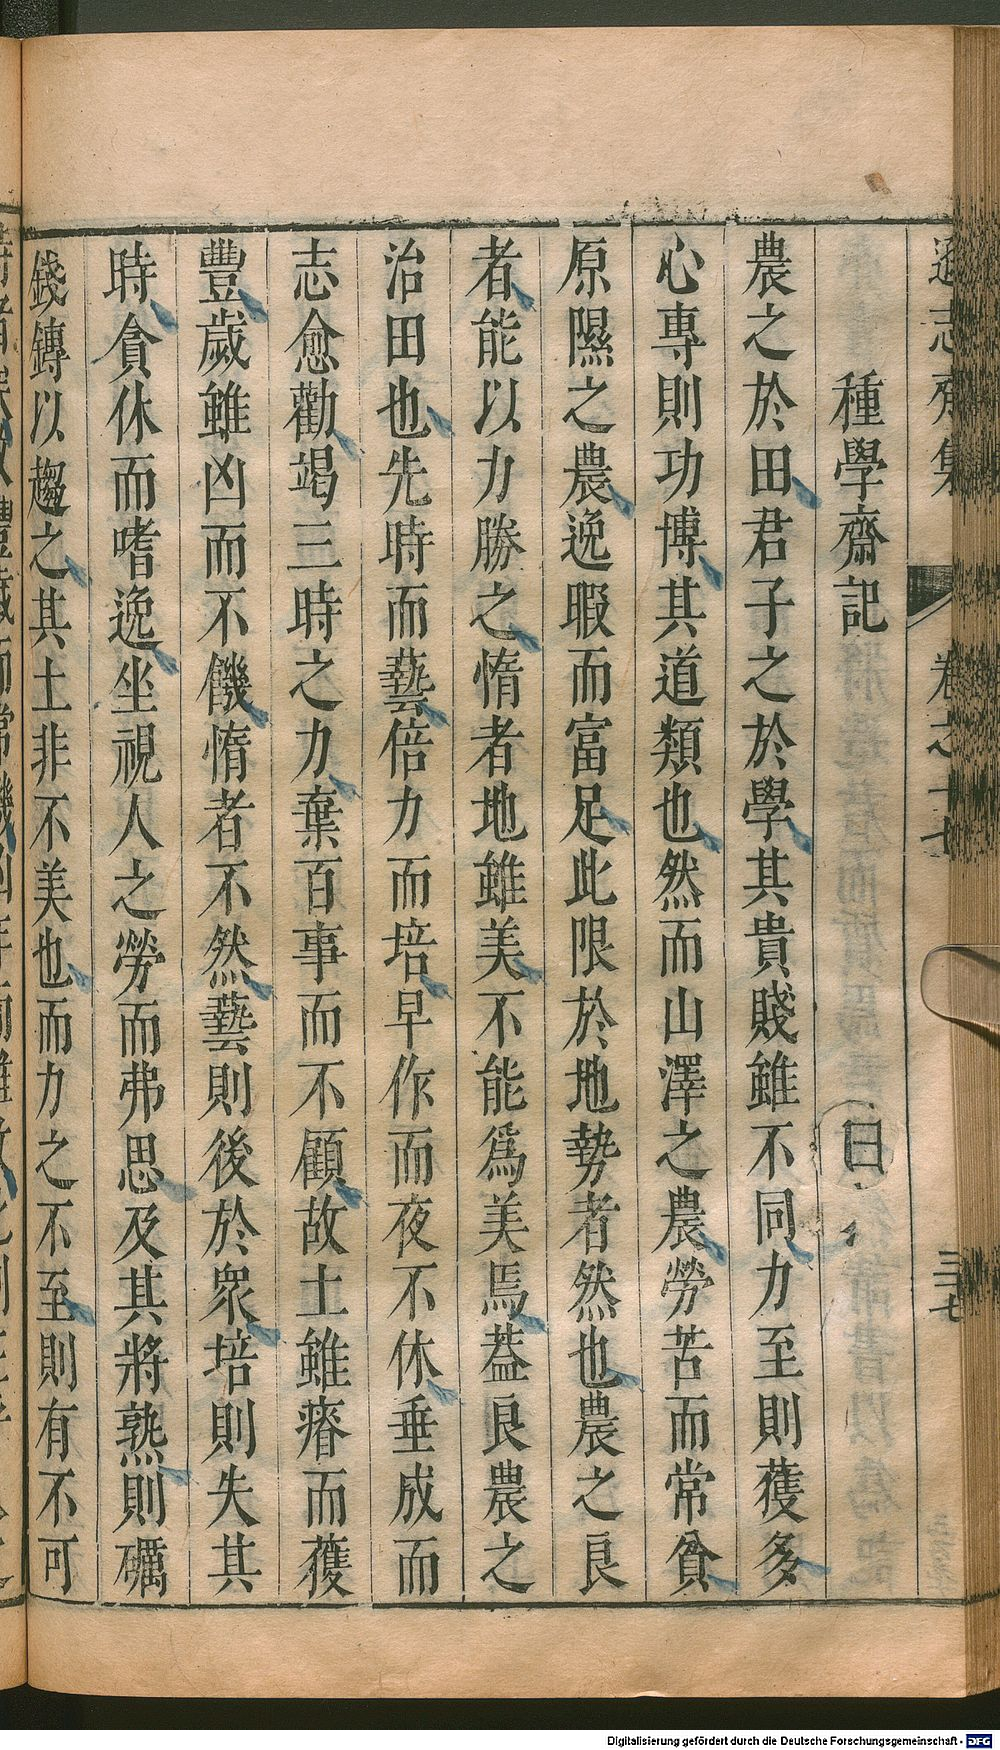 遜志齋集 卷之十七 三七
種學齋記 曰
農之於田君子之於學其貴賤雖不同力至則獲多
心專則功博其道類也然而山澤之農勞苦而常貧
原隰之農逸暇而富足此限於地勢者然也農之良
者能以力勝之惰者地雖美不能爲美焉葢良農之
治田也先時而藝倍力而培早作而夜不休垂成而
志愈勸竭三時之力棄百事而不顧故土雖瘠而獲
豐歲雖凶而不饑惰者不然藝則後於衆培則失其
時貪休而嗜逸坐視人之勞而弗思及其將熟則礪
錢鎛以趨之其土非不美也而力之不至則有不可
Digitalisierung gefördert durch die Deutsche Forschungsgemeinschaft - DFG